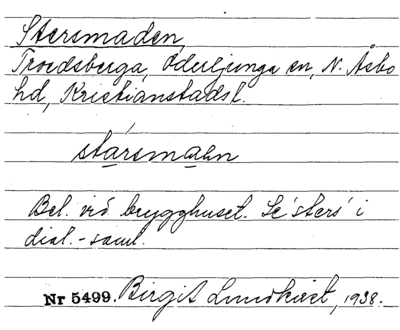 Starsmaden,
Troedsberga, Örkeljunga sn, N. Åsbo
hd, Kristianstads l.
stársmaen
Bel. vid brygghuset. Se 'stars' i
dial.-saml.
Nr 5499. Birgit Lundkvist, 1938.